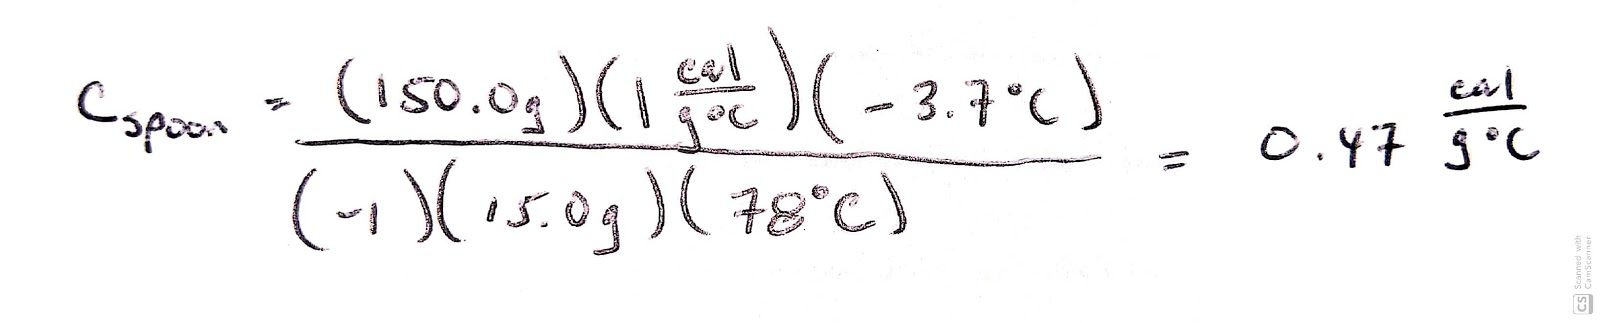 C_spoon = (150.0g)(1 cal/g°C)(-3.7°C) / (-1)(15.0g)(78°C) = 0.47 cal/g°C
CS Scanned with CamScanner